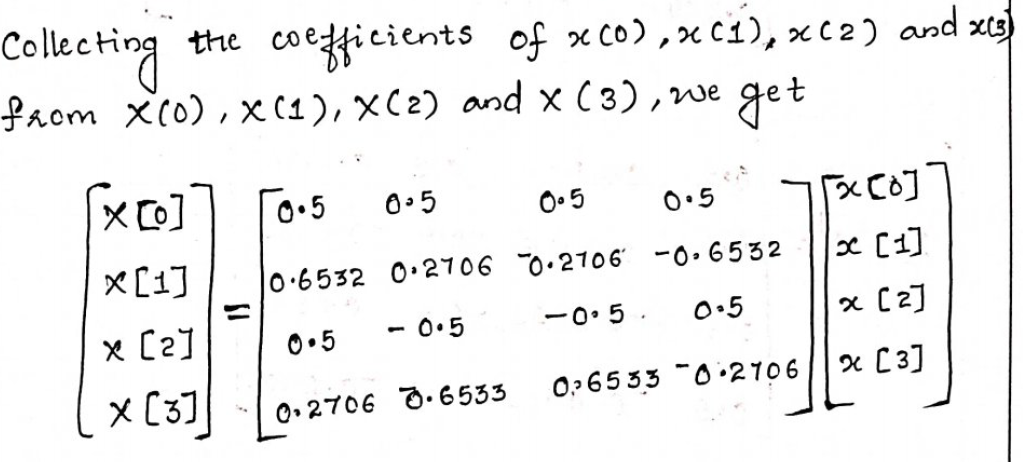 Collecting the coefficients of x(0), x(1), x(2) and x(3)
from X(0), X(1), X(2) and X(3), we get
[X[0]] [0.5 0.5 0.5 0.5] [x[0]]
[X[1]] [0.6532 0.2706 -0.2706 -0.6532] [x[1]]
=
[X[2]] [0.5 -0.5 -0.5 0.5] [x[2]]
[X[3]] [0.2706 -0.6533 0.6533 -0.2706] [x[3]]